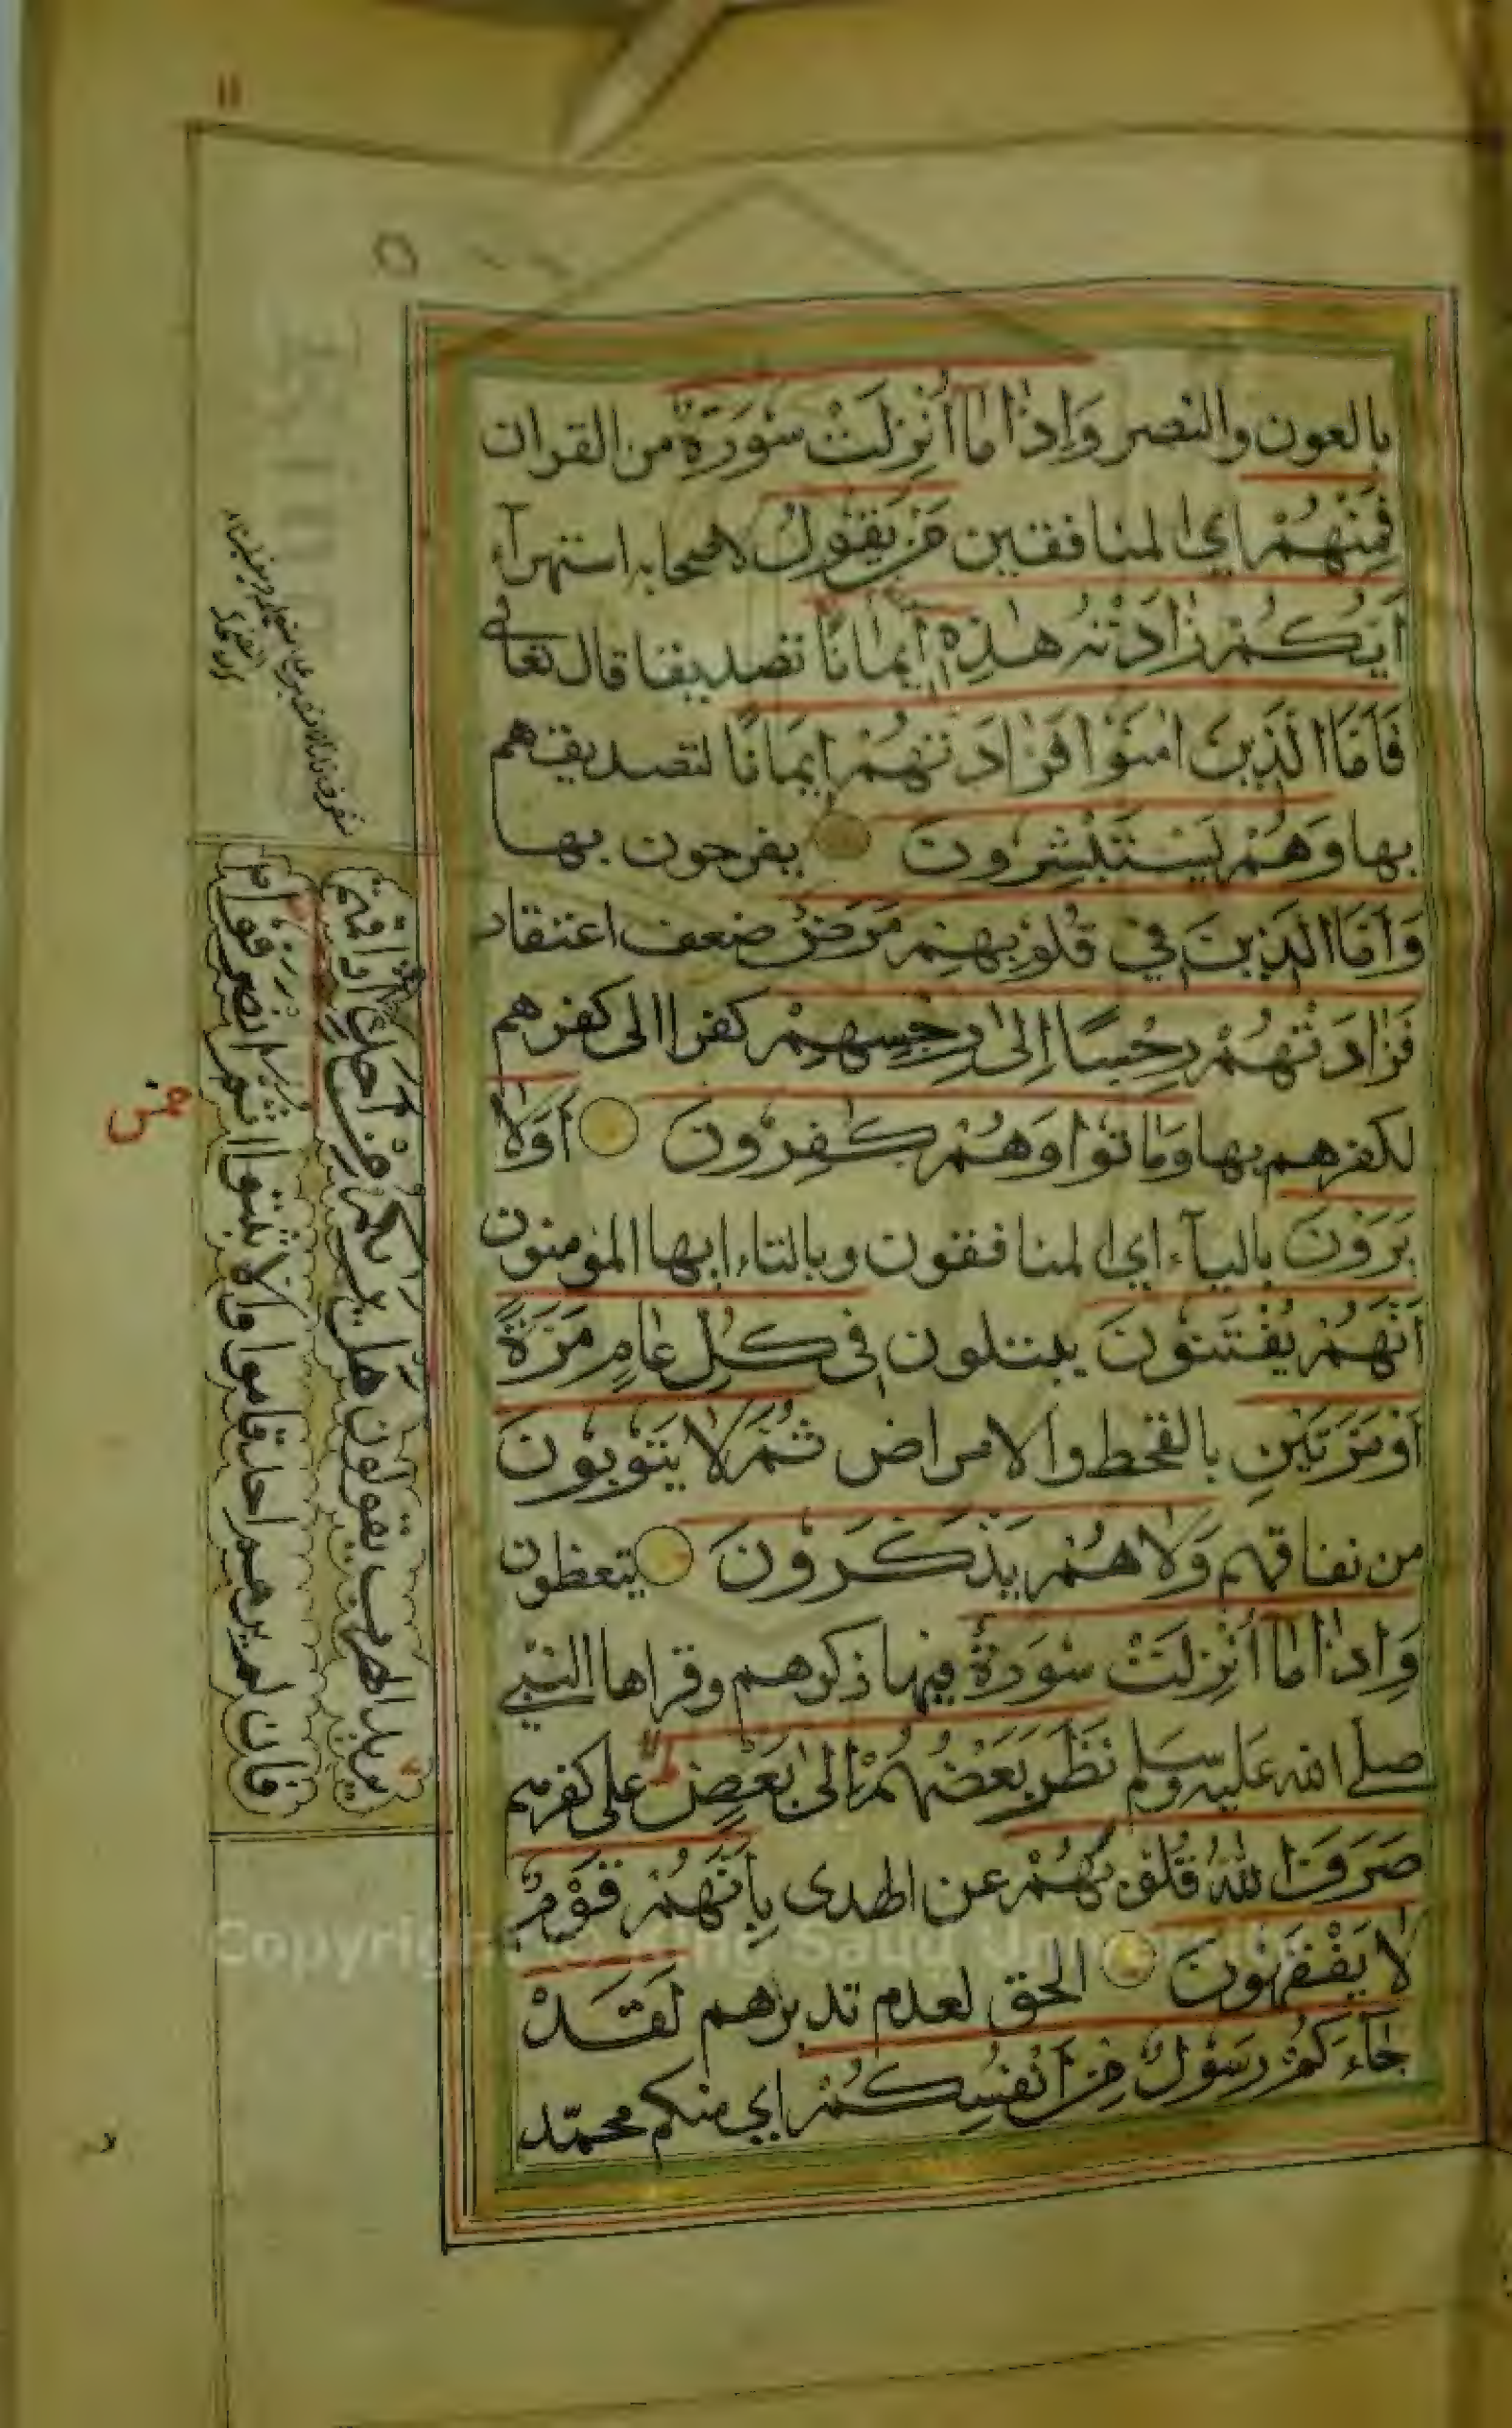 ١١
بالعون والنصر وَاِذَا مَا اُنْزِلَتْ سُورَةٌ من القران
فَمِنْهُمْ اي المنافقين مَنْ يَقُولُ لاصحابه استهزآء
اَيُّكُمْ زَادَتْهُ هٰذِهٖ اِيمَانًا تصديقا قال تعالى
فَاَمَّا الَّذِينَ اٰمَنُوا فَزَادَتْهُمْ اِيمَانًا لتصديقهم
بها وَهُمْ يَسْتَبْشِرُونَ يفرحون بها
وَاَمَّا الَّذِينَ فِي قُلُوبِهِمْ مَرَضٌ ضعف اعتقاد
فَزَادَتْهُمْ رِجْسًا اِلٰى رِجْسِهِمْ كفرا الى كفرهم
لكفرهم بها وَمَاتُوا وَهُمْ كٰفِرُونَ اَوَلَا
يَرَوْنَ باليآء اي المنافقون وبالتاء ايها المؤمنون
اَنَّهُمْ يُفْتَنُونَ يبتلون فِي كُلِّ عَامٍ مَرَّةً
اَوْ مَرَّتَيْنِ بالقحط والامراض ثُمَّ لَا يَتُوبُونَ
من نفاقهم وَلَا هُمْ يَذَّكَّرُونَ يتعظون
وَاِذَا مَا اُنْزِلَتْ سُورَةٌ فيها ذكرهم وقراها النبي
صلى الله عليه وسلم نَظَرَ بَعْضُهُمْ اِلٰى بَعْضٍ على كفرهم
صَرَفَ اللهُ قُلُوبَهُمْ عن الهدى بِاَنَّهُمْ قَوْمٌ
لَا يَفْقَهُونَ الحق لعدم تدبرهم لَقَدْ
جَآءَكُمْ رَسُولٌ مِنْ اَنْفُسِكُمْ اي منكم محمّد
يريدون الهرب يقولون هَلْ يَرٰىكُمْ مِنْ اَحَدٍ اذا قمتم
فان لم يرهم احد قاموا والا ثبتوا ثُمَّ انْصَرَفُوا
Copyright © King Saud University